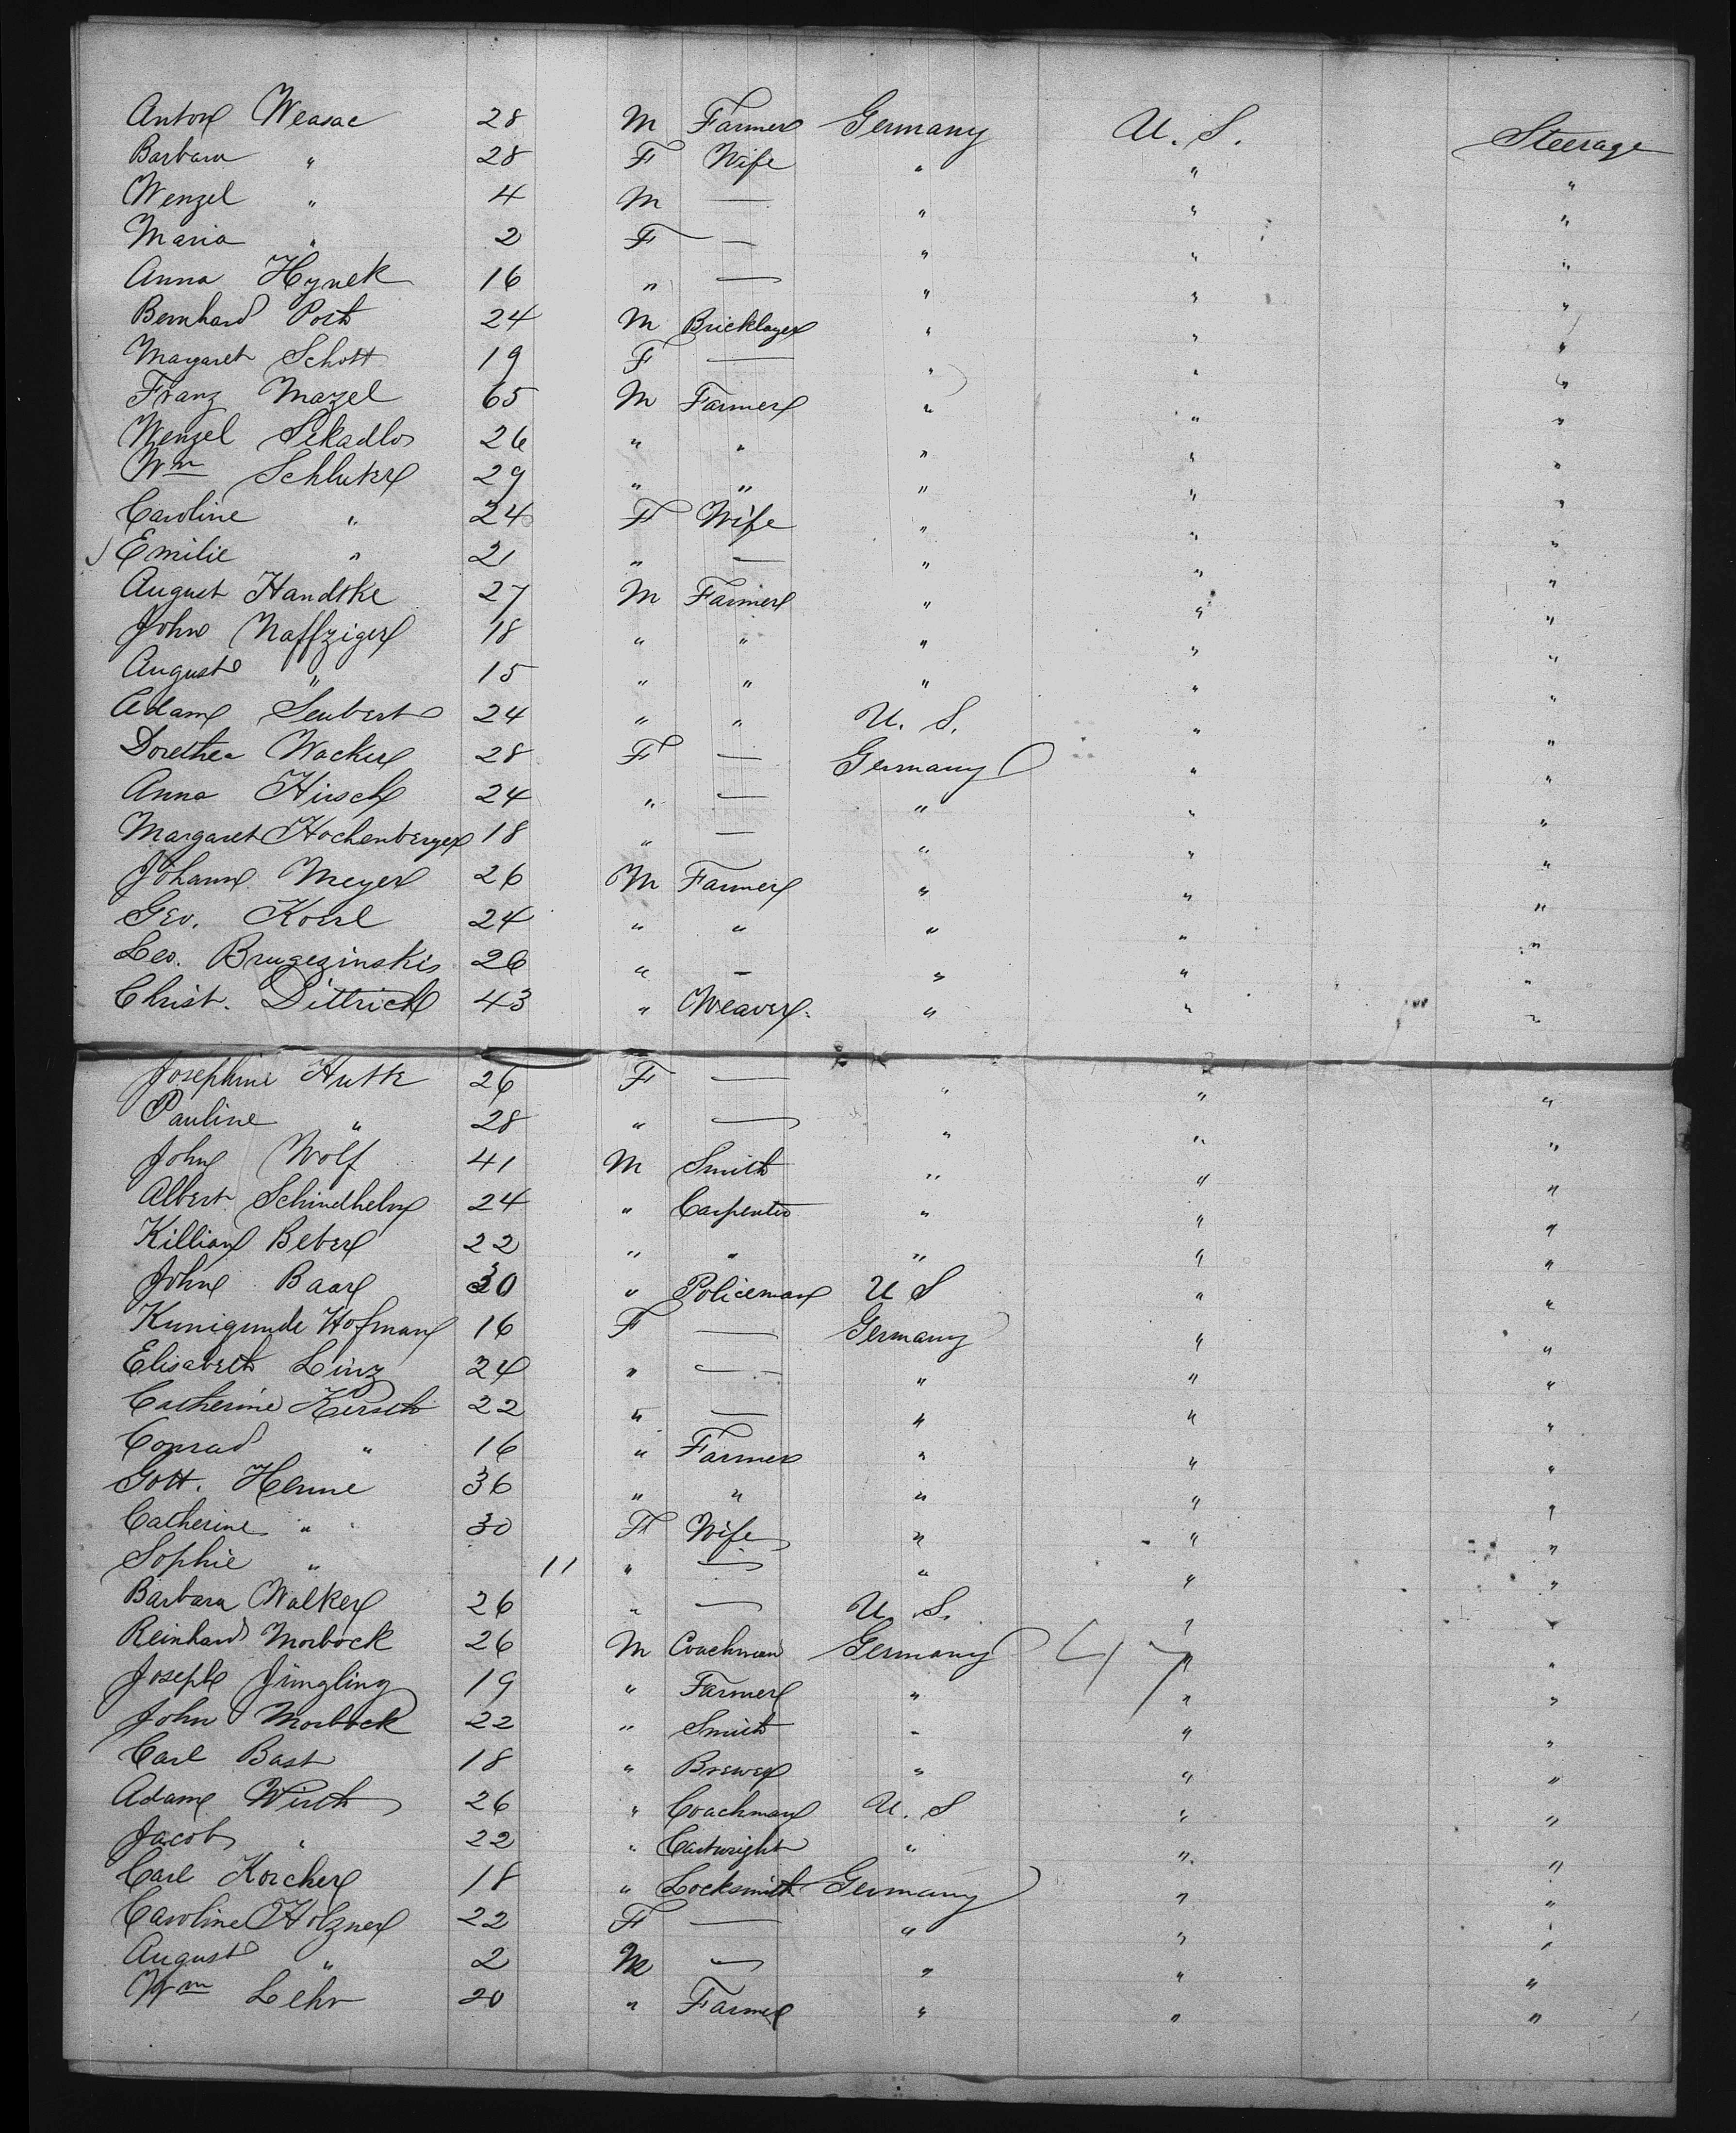 Anton Weasac 28 M Farmer Germany U. S. Steerage
Barbara " 28 F Wife " " "
Wenzel " 4 M — " " "
Maria " 2 F — " " "
Anna Hynek 16 " — " " "
Bernhard Porth 24 M Bricklayer " " "
Margaret Schott 19 F — " " "
Franz Mazel 65 M Farmer " " "
Wenzel Sekadlo 26 " " " " "
Wm Schluter 29 " " " " "
Caroline " 24 F Wife " " "
Emilie " 21 " — " " "
August Handtke 27 M Farmer " " "
John Naffziger 18 " " " " "
August " 15 " " " " "
Adam Seubert 24 " " U. S. " "
Dorethea Wacker 28 F — Germany " "
Anna Hirsch 24 " — " " "
Margaret Hochenberger 18 " — " " "
Johann Meyer 26 M Farmer " " "
Geo. Koesl 24 " " " " "
Leo. Brugezinskis 26 " – " " "
Christ. Dittrich 43 " Weaver " " "
Josephine Huth 26 F — " " "
Pauline " 28 " — " " "
John Wolf 41 M Smith " " "
Albert Schindhelm 24 " Carpenter " " "
Killian Beber 22 " " " " "
John Baar 30 " Policeman U S " "
Kunigunde Hofman 16 F — Germany " "
Elisabeth Linz 24 " — " " "
Catherine Kersch 22 " — " " "
Conrad " 16 " Farmer " " "
Gott. Henne 36 " " " " "
Catherine " 30 F Wife " " "
Sophie " 11 " — " " "
Barbara Walker 26 " — U. S. " "
Reinhard Morbock 26 M Coachman Germany 47 " "
Joseph Jüngling 19 " Farmer " " "
John Morbock 22 " Smith " " "
Carl Bast 18 " Brewer " " "
Adam Wirth 26 " Coachman U. S " "
Jacob " 22 " Cartwright " " "
Carl Korcher 18 " Locksmith Germany " "
Caroline Holzner 22 F — " " "
August " 2 M — " " "
Wm Lehr 20 " Farmer " " "